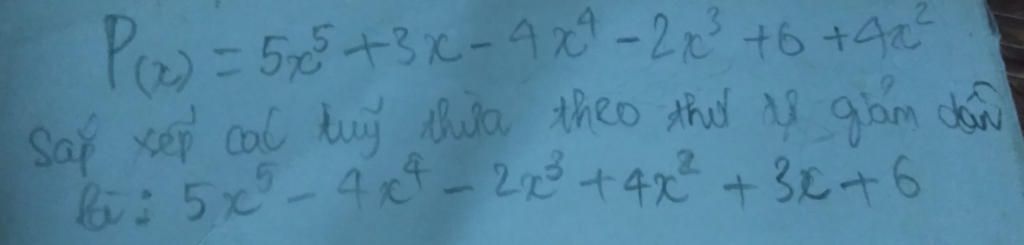 P(x) = 5x⁵ + 3x - 4x⁴ - 2x³ + 6 + 4x²
Sắp xếp các luỹ thừa theo thứ tự giảm dần
5x⁵ - 4x⁴ - 2x³ + 4x² + 3x + 6